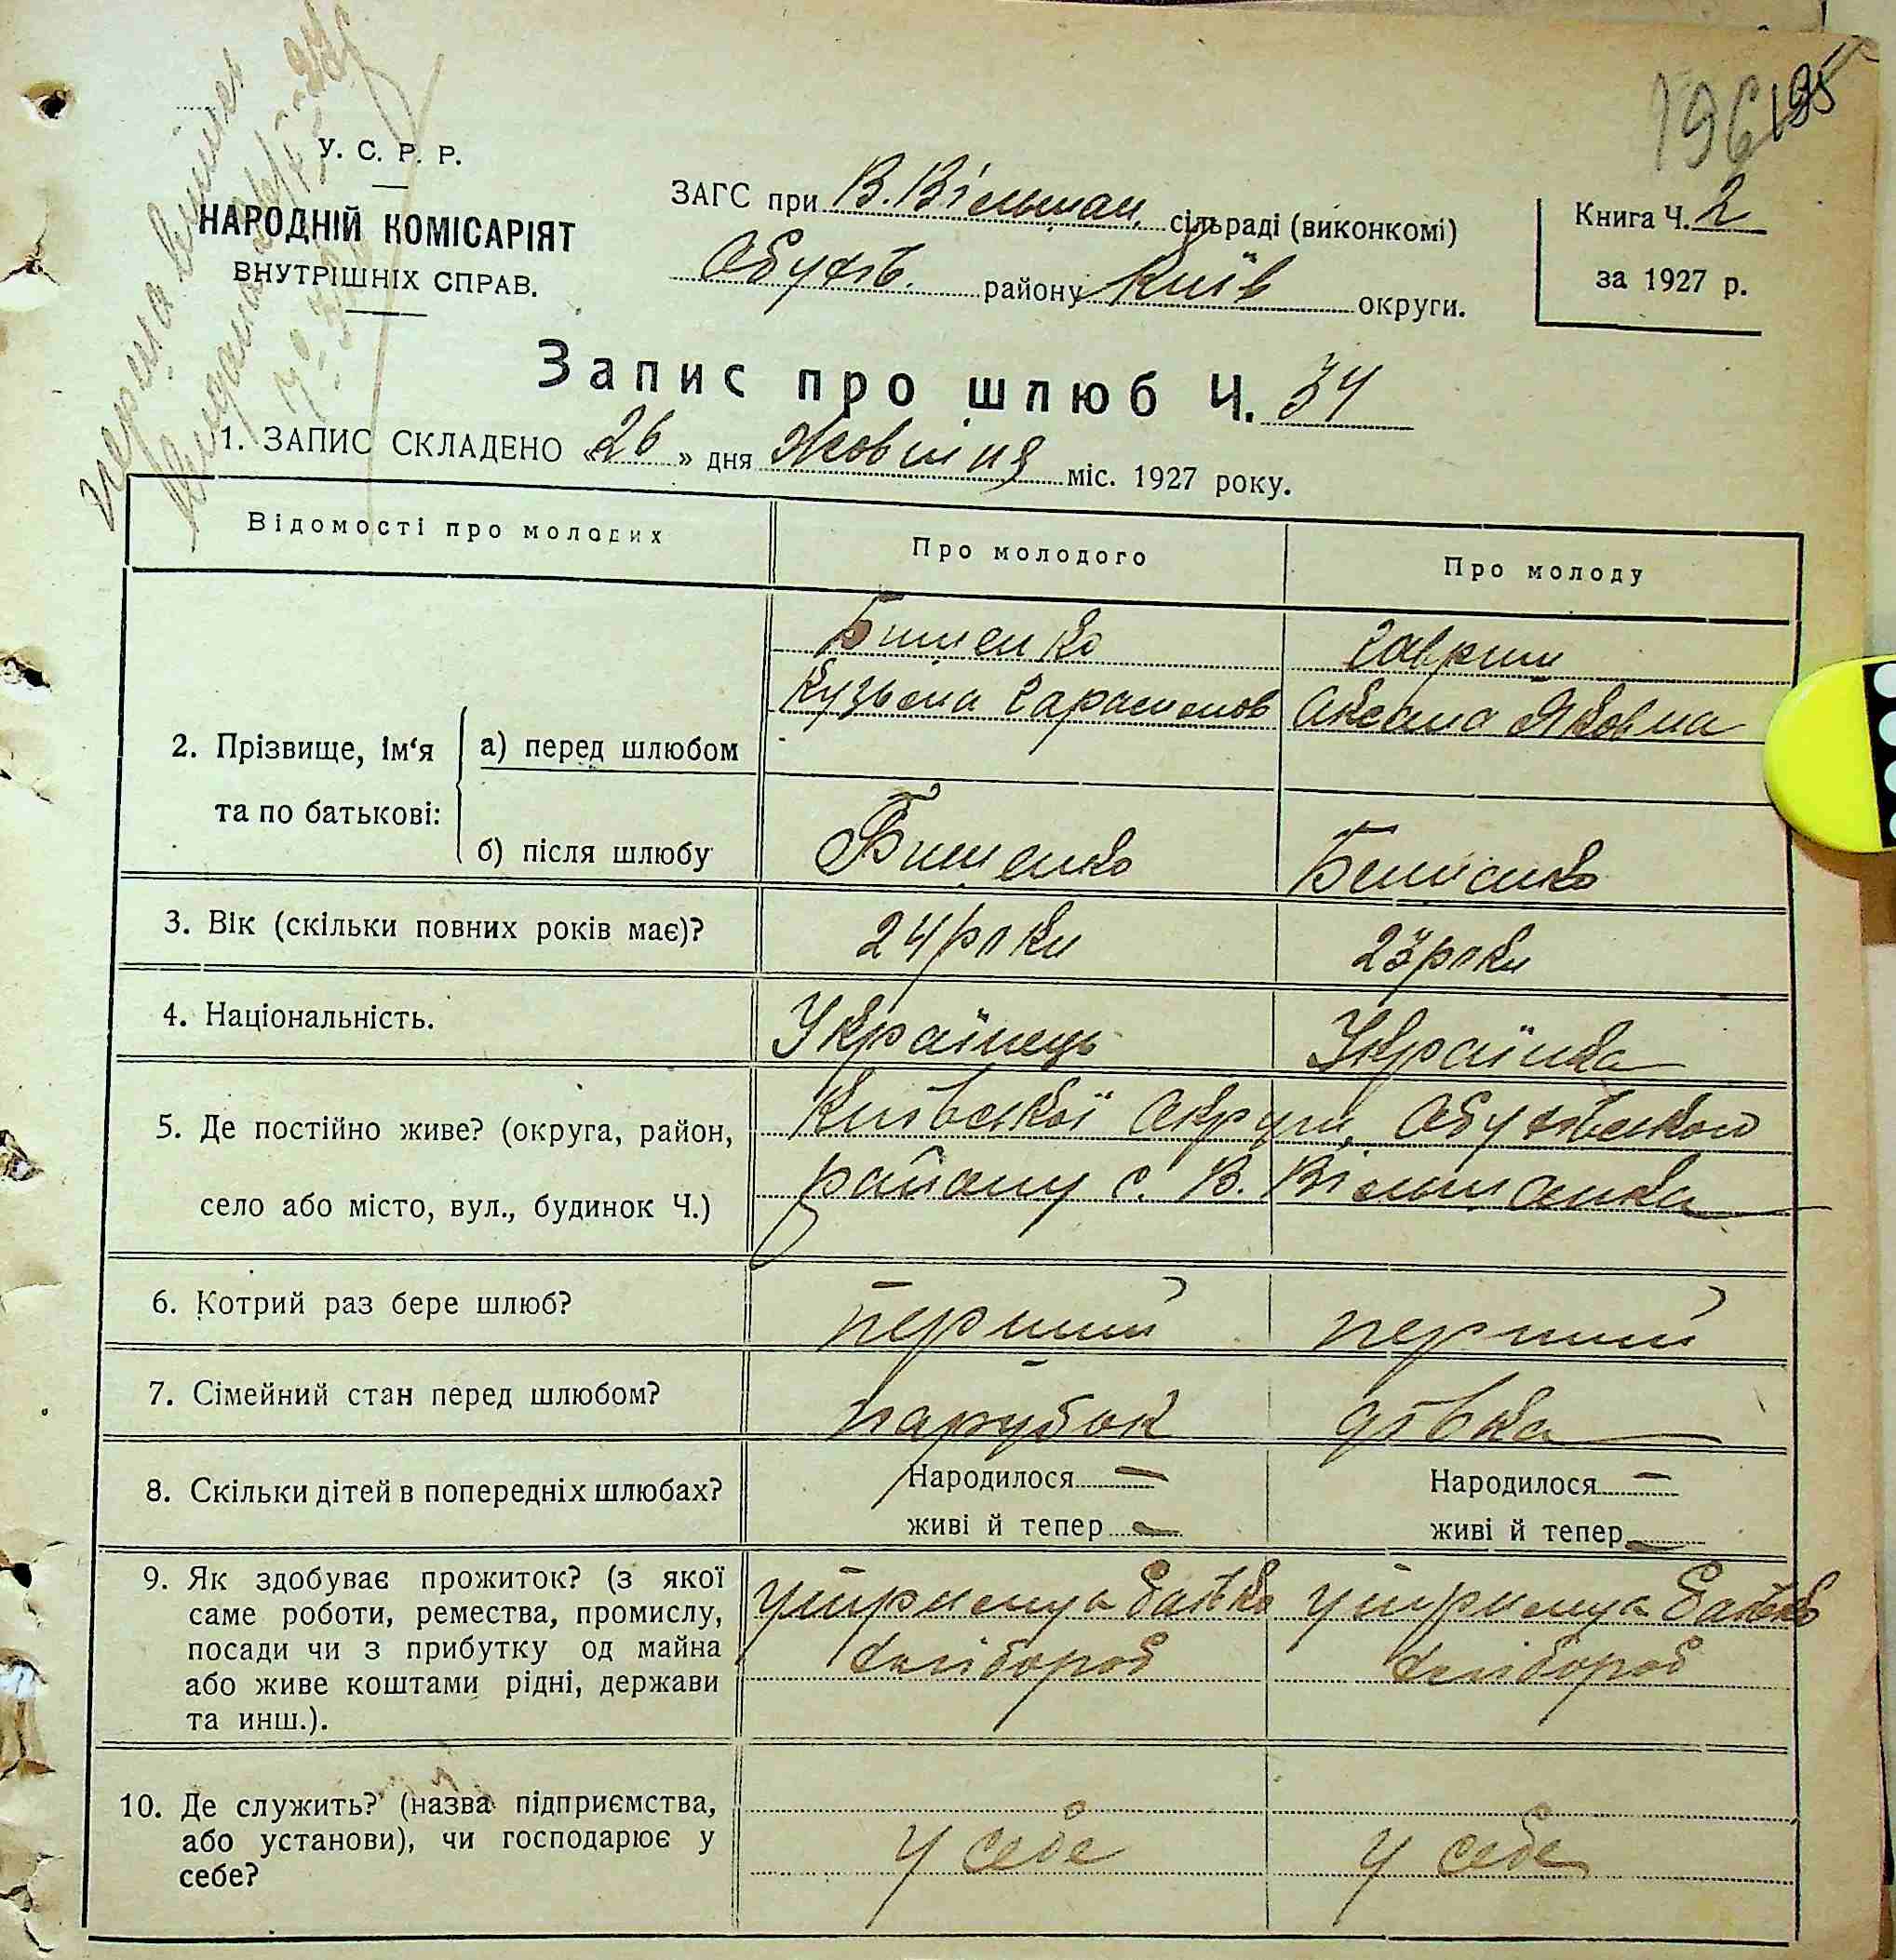 196 195
У. С. Р. Р.
НАРОДНІЙ КОМІСАРІЯТ
ВНУТРІШНІХ СПРАВ.
ЗАГС при В. Вільшан. сільраді (виконкомі)
Обухів. району Київ округи.
Книга Ч. 2
за 1927 р.
Запис про шлюб Ч. 34
1. ЗАПИС СКЛАДЕНО «26» дня Жовтня міс. 1927 року.
Відомості про молодих
Про молодого
Про молоду
2. Прізвище, ім'я та по батькові:
а) перед шлюбом
Кузьма Гарасимов
Гавриш
Оксана Яковна
б) після шлюбу
3. Вік (скільки повних років має)?
24 роки
23 роки
4. Національність.
Українець
Українка
5. Де постійно живе? (округа, район,
село або місто, вул., будинок Ч.)
Київської Округи, Обухівського
району с. В. Вільшанка
6. Котрий раз бере шлюб?
перший
перший
7. Сімейний стан перед шлюбом?
парубок
дівка
8. Скільки дітей в попередніх шлюбах?
Народилося —
живі й тепер —
Народилося —
живі й тепер —
9. Як здобуває прожиток? (з якої
саме роботи, ремества, промислу,
посади чи з прибутку од майна
або живе коштами рідні, держави
та инш.).
утримує батько
хлібороб
утримує батько
хлібороб
10. Де служить? (назва підприємства,
або установи), чи господарює у
себе?
У себе
У себе